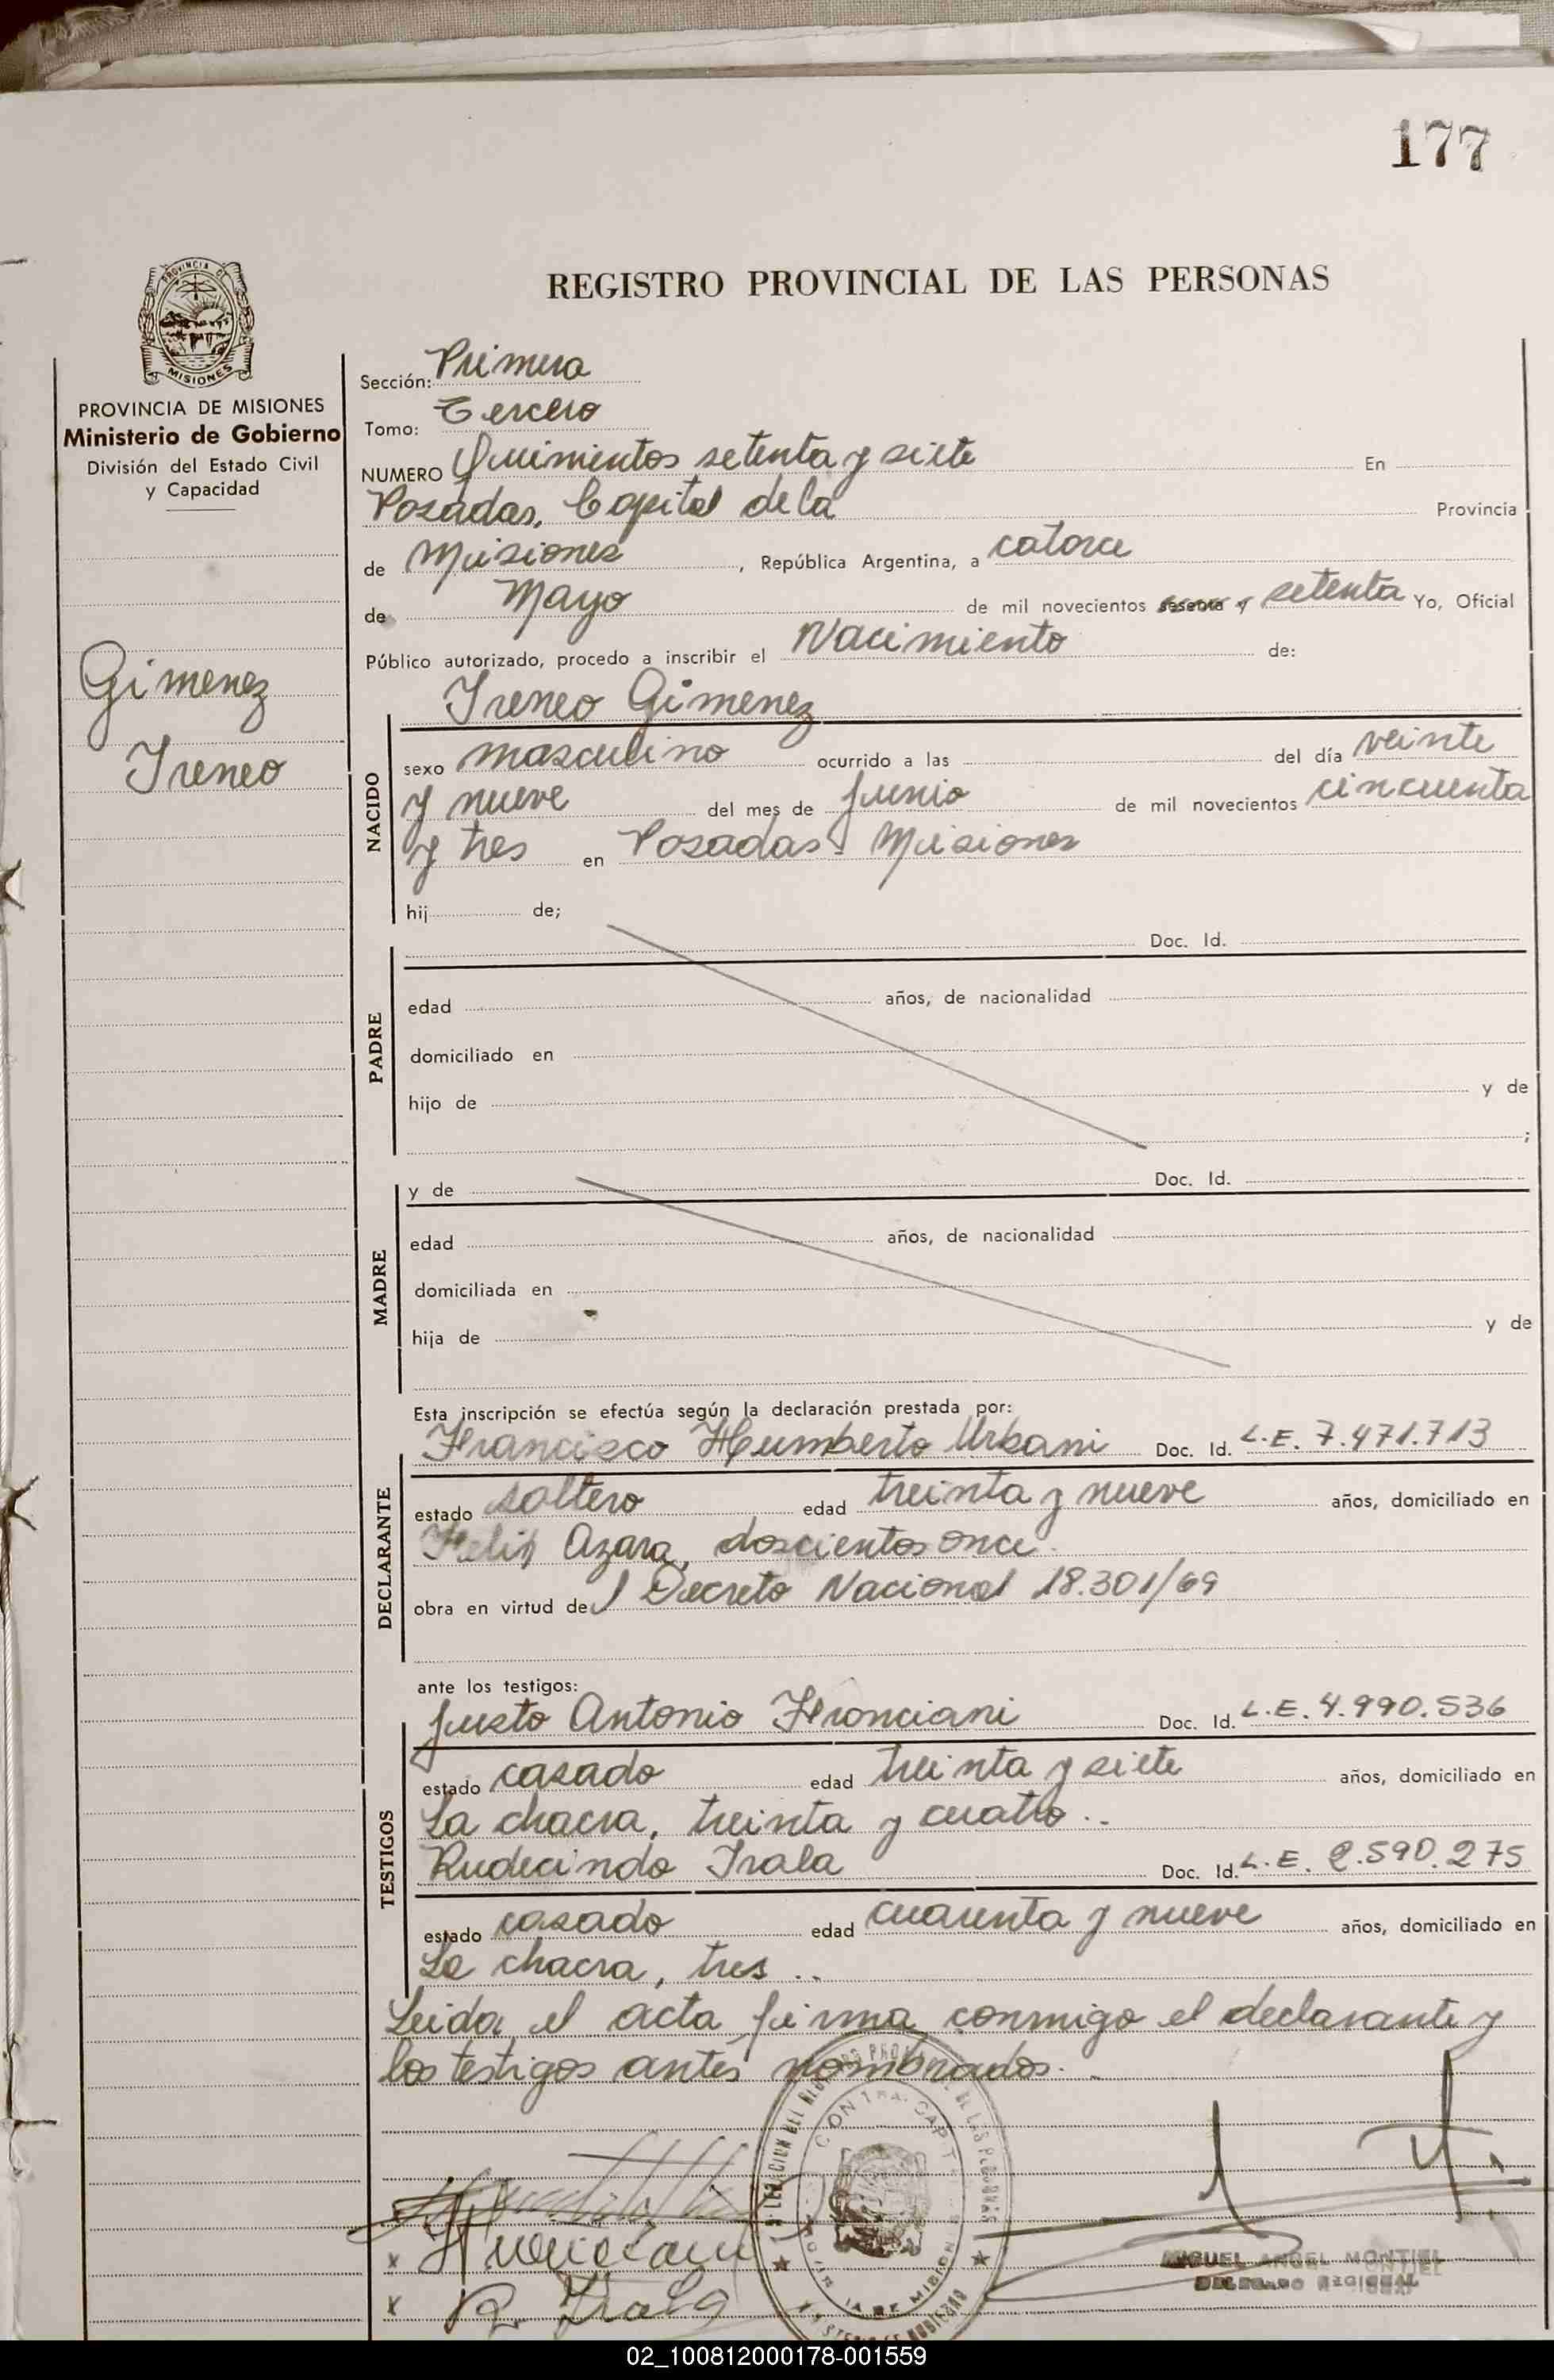 177
PROVINCIA DE MISIONES
PROVINCIA DE MISIONES
Ministerio de Gobierno
División del Estado Civil
y Capacidad
Gimenez
Ireneo
REGISTRO PROVINCIAL DE LAS PERSONAS
Sección: Primera
Tomo: Tercero
NUMERO Quinientos setenta y siete En
Posadas, Capital de la Provincia
de Misiones, República Argentina, a catorce
de Mayo de mil novecientos sesenta y setenta Yo, Oficial
Público autorizado, procedo a inscribir el Nacimiento de:
Ireneo Gimenez
NACIDO
sexo masculino ocurrido a las del día veinte
y nueve del mes de Junio de mil novecientos cincuenta
y tres en Posadas - Misiones
hij de;
PADRE
Doc. Id.
edad años, de nacionalidad
domiciliado en
hijo de y de
;
MADRE
y de Doc. Id.
edad años, de nacionalidad
domiciliada en
hija de y de
Esta inscripción se efectúa según la declaración prestada por:
DECLARANTE
Francisco Humberto Urbani Doc. Id. L.E. 7.471.713
estado soltero edad treinta y nueve años, domiciliado en
Felix Azara, doscientos once.
obra en virtud del Decreto Nacional 18.301/69
ante los testigos:
TESTIGOS
Justo Antonio Franciani Doc. Id. L.E. 4.990.536
estado casado edad treinta y siete años, domiciliado en
La chacra, treinta y cuatro..
Rudecindo Irala Doc. Id. L.E. 2.590.275
estado casado edad cuarenta y nueve años, domiciliado en
La chacra, tres..
Leida el acta firma conmigo el declarante y
los testigos antes nombrados.
x
x R. Irala
MIGUEL ANGEL MONTIEL
DELEGADO REGIONAL
02_100812000178-001559